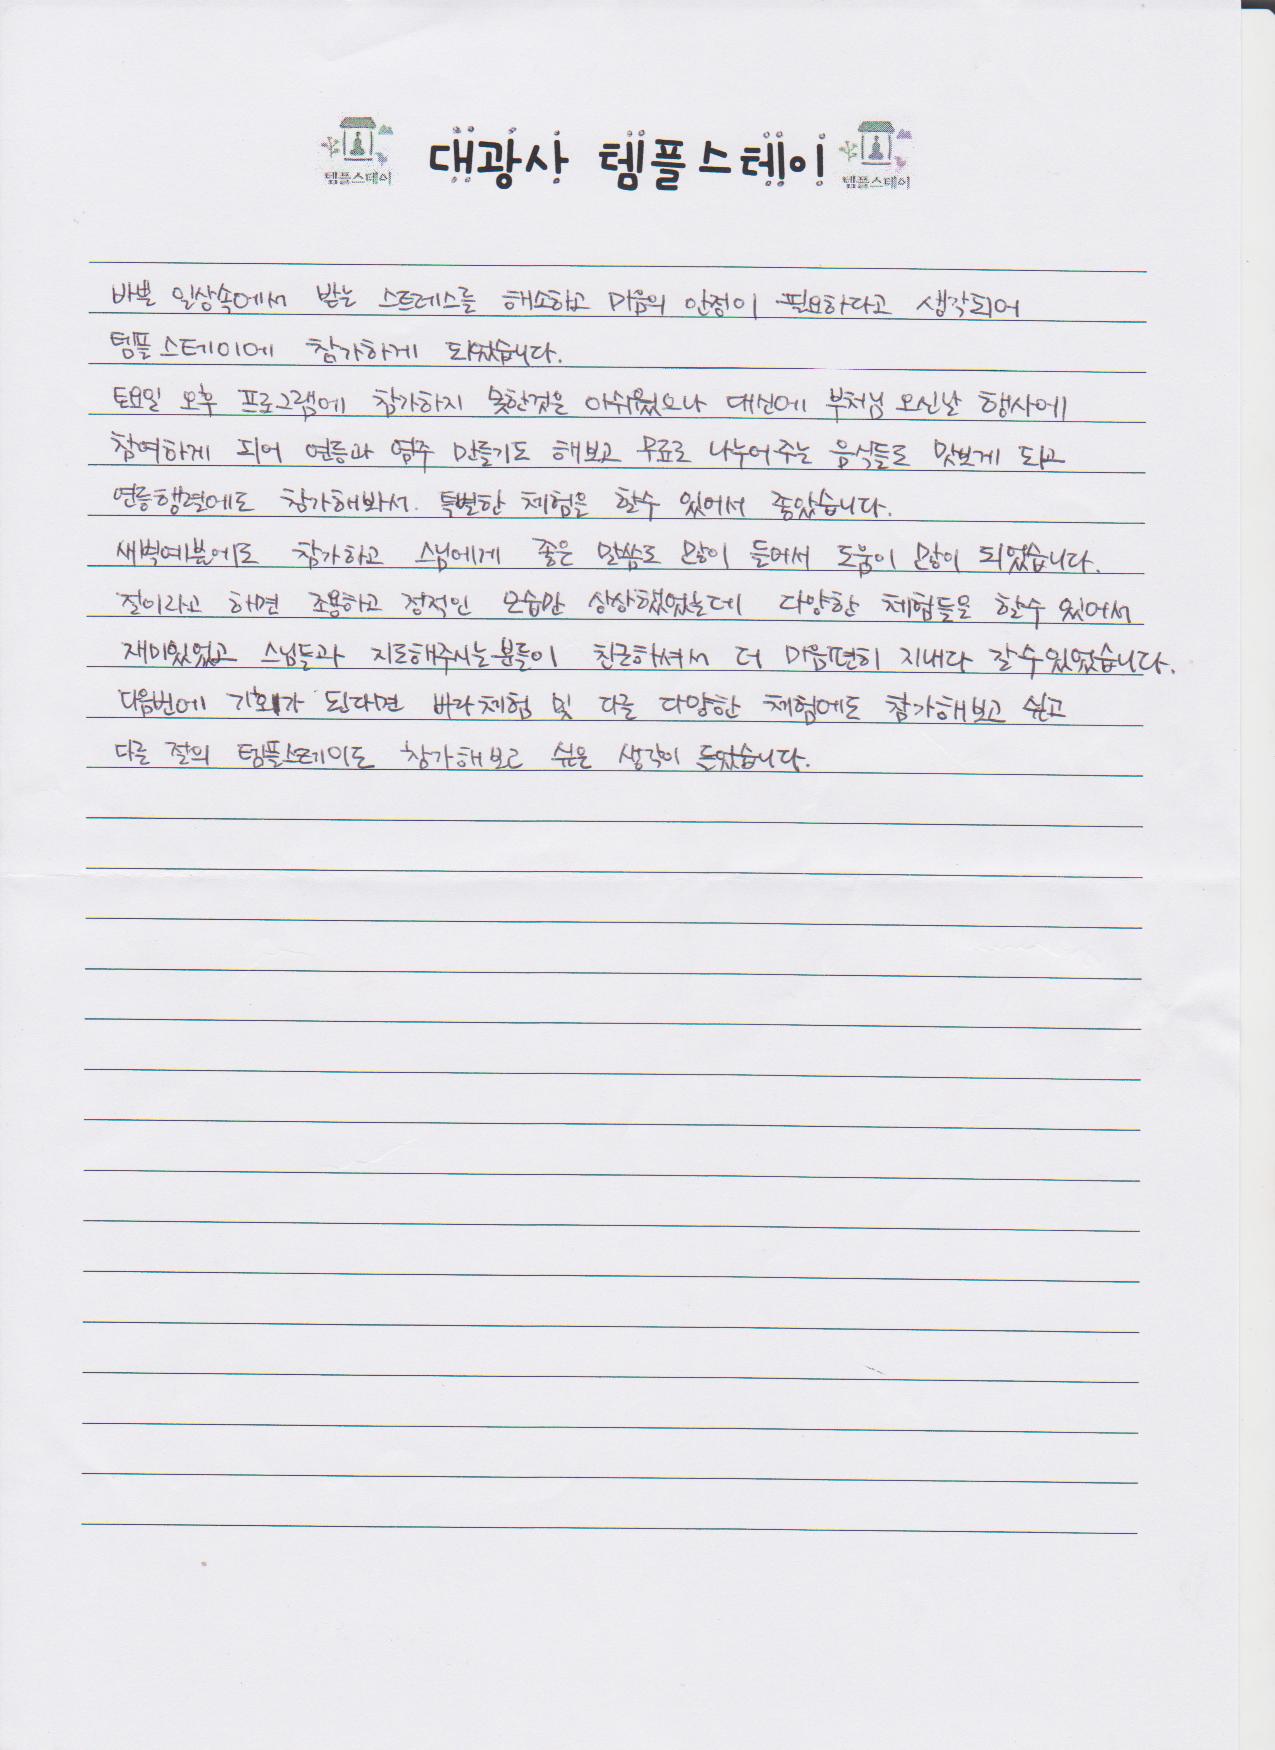 템플스테이 대광사 템플스테이 템플스테이
바쁜 일상속에서 받는 스트레스를 해소하고 마음의 안정이 필요하다고 생각되어
템플스테이에 참가하게 되었습니다.
토요일 오후 프로그램에 참가하지 못한것은 아쉬웠으나 대신에 부처님 오신날 행사에
참여하게 되어 연등과 염주 만들기도 해보고 무료로 나누어주는 음식들로 맛보게 되고
연등행렬에도 참가해봐서 특별한 체험을 할수 있어서 좋았습니다.
새벽예불에도 참가하고 스님에게 좋은 말씀도 많이 들어서 도움이 많이 되었습니다.
절이라고 하면 조용하고 정적인 모습만 상상했었는데 다양한 체험들을 할수 있어서
재미있었고 스님들과 지도해주시는분들이 친근하셔서 더 마음편히 지내다 갈수있었습니다.
다음번에 기회가 된다면 바라체험 및 다른 다양한 체험에도 참가해보고 싶고
다른 절의 템플스테이도 참가해보고 싶은 생각이 들었습니다.